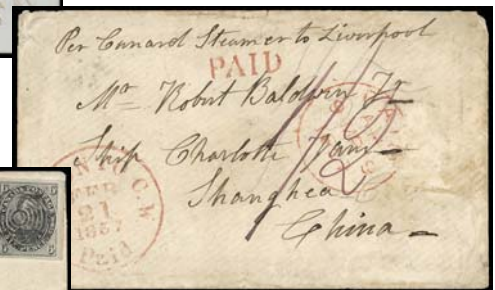 Per Cunard Steamer to Liverpool
PAID
Mr Robert Baldwin Jr
Ship Charlotte Jane
Shanghea
China
C.W
FEB
21
1857
Paid